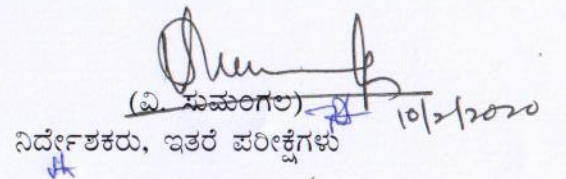 (ವಿ. ಸುಮಂಗಲ)
10/2/2020
ನಿರ್ದೇಶಕರು, ಇತರೆ ಪರೀಕ್ಷೆಗಳು